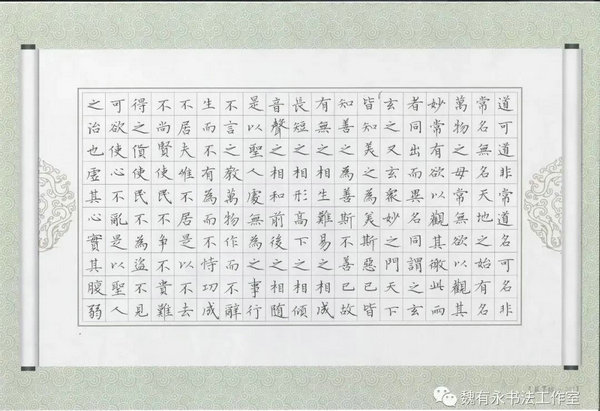 道可道非常道名可名非
常名無名天地之始有名
萬物之母常無欲以觀其
妙常有欲以觀其徼此兩
者同出而異名同謂之玄
玄之又玄眾妙之門天下
皆知美之為美斯惡已皆
知善之為善斯不善已故
有無之相生難易之相成
長短之相形高下之相傾
音聲之相和前後之相隨
是以聖人處無為之事行
不言之教萬物作而不辭
生而不有為而不恃功成
不居夫唯不居是以不去
不尚賢使民不爭不貴難
得之貨使民不為盜不見
可欲使心不亂是以聖人
之治也虛其心實其腹弱
魏有永书法工作室